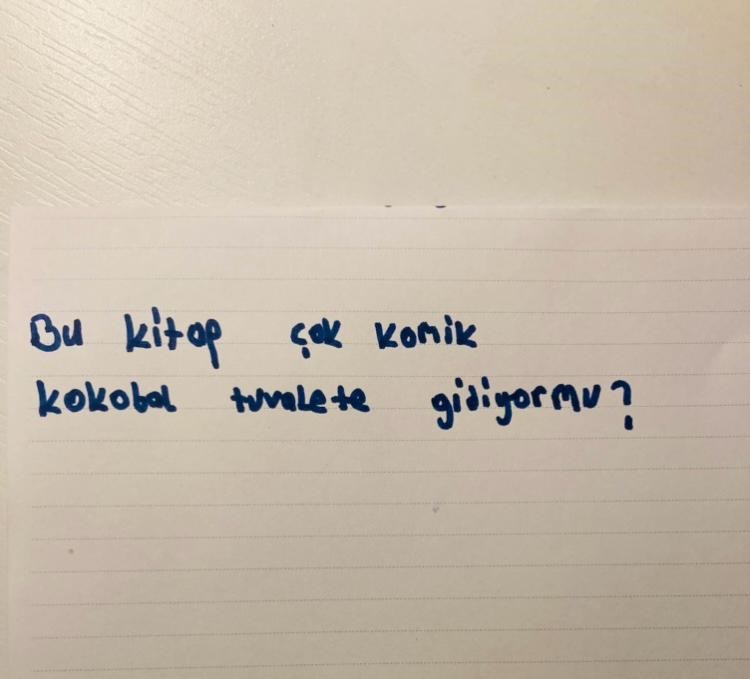 Bu kitap çok komik
kokobal tuvalete gidiyormu?